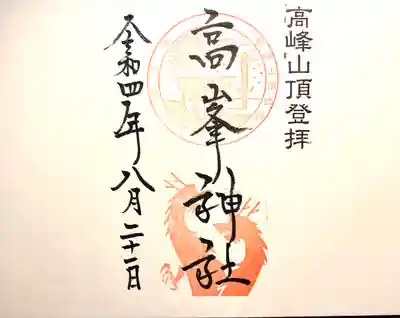 高峰山頂登拝
高峯神社
令和四年八月二十一日